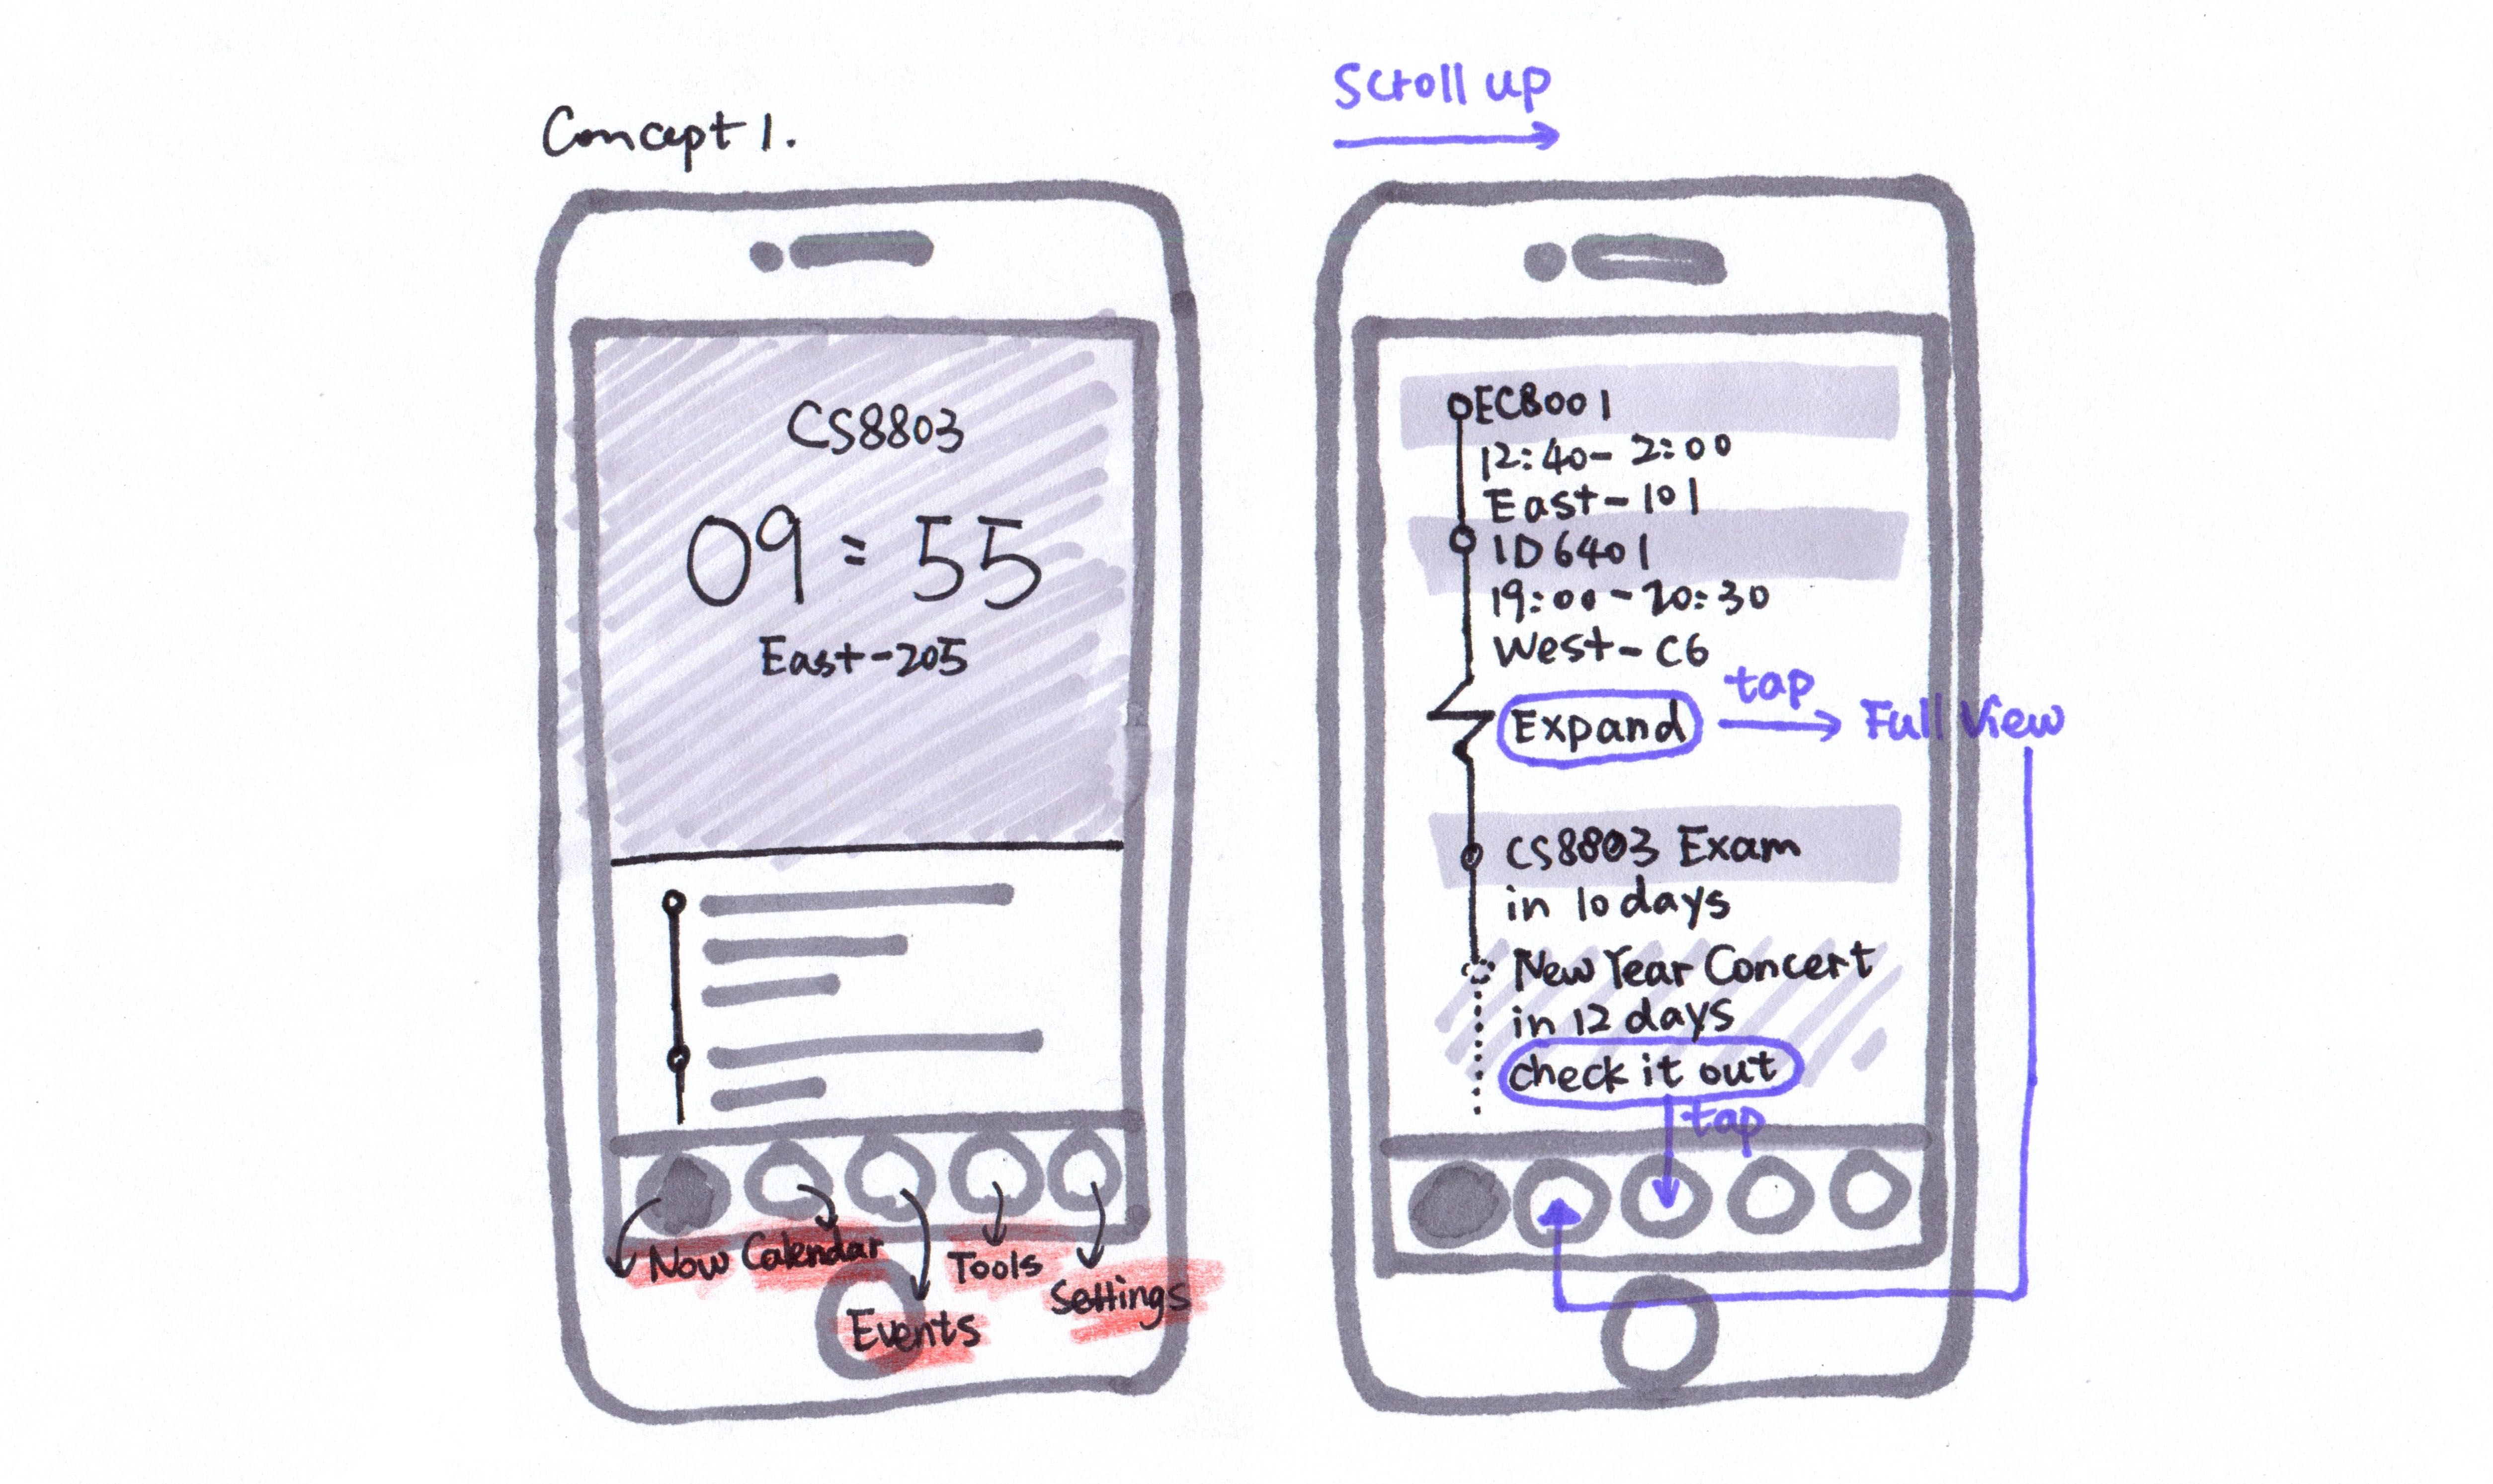 Concept 1.
CS8803
09:55
East-205
Now
Calendar
Events
Tools
Settings
Scroll up
EC8001
12:40- 2:00
East-101
ID6401
19:00-20:30
West-C6
Expand
tap
Full View
CS8803 Exam
in 10 days
New Year Concert
in 12 days
check it out
tap